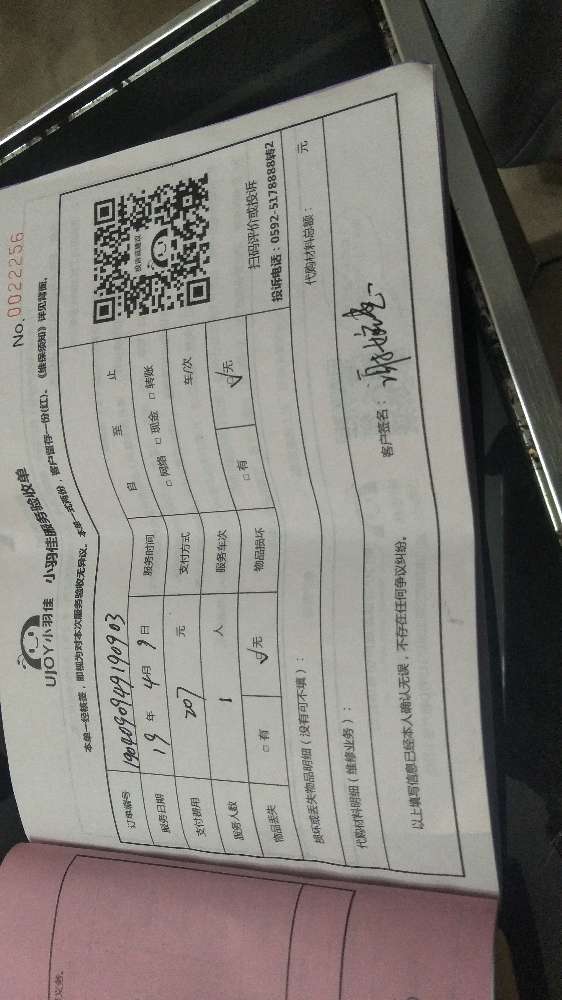 No.0022256
UJOY小羽佳 小羽佳服务验收单
本单一经核签，即视为对本次服务验收无异议。本单一式两份，客户留存一份(红)。《维保须知》详见背面。
订单编号 190409094919090903
服务日期 19 年 4 月 9 日 服务时间 自 至 止
支付费用 207 元 支付方式 □ 网络 □ 现金 □ 转账
服务人数 1 人 服务车次 车/次
物品丢失 □ 有 ☑ 无 物品损坏 □ 有 ☑ 无
投诉或建议
扫码评价或投诉
投诉电话：0592-5178888转2
损坏或丢失物品明细（没有可不填）：
代购材料明细（维修业务）： 代购材料总额： 元
以上填写信息已经本人确认无误，不存在任何争议纠纷。
客户签名：